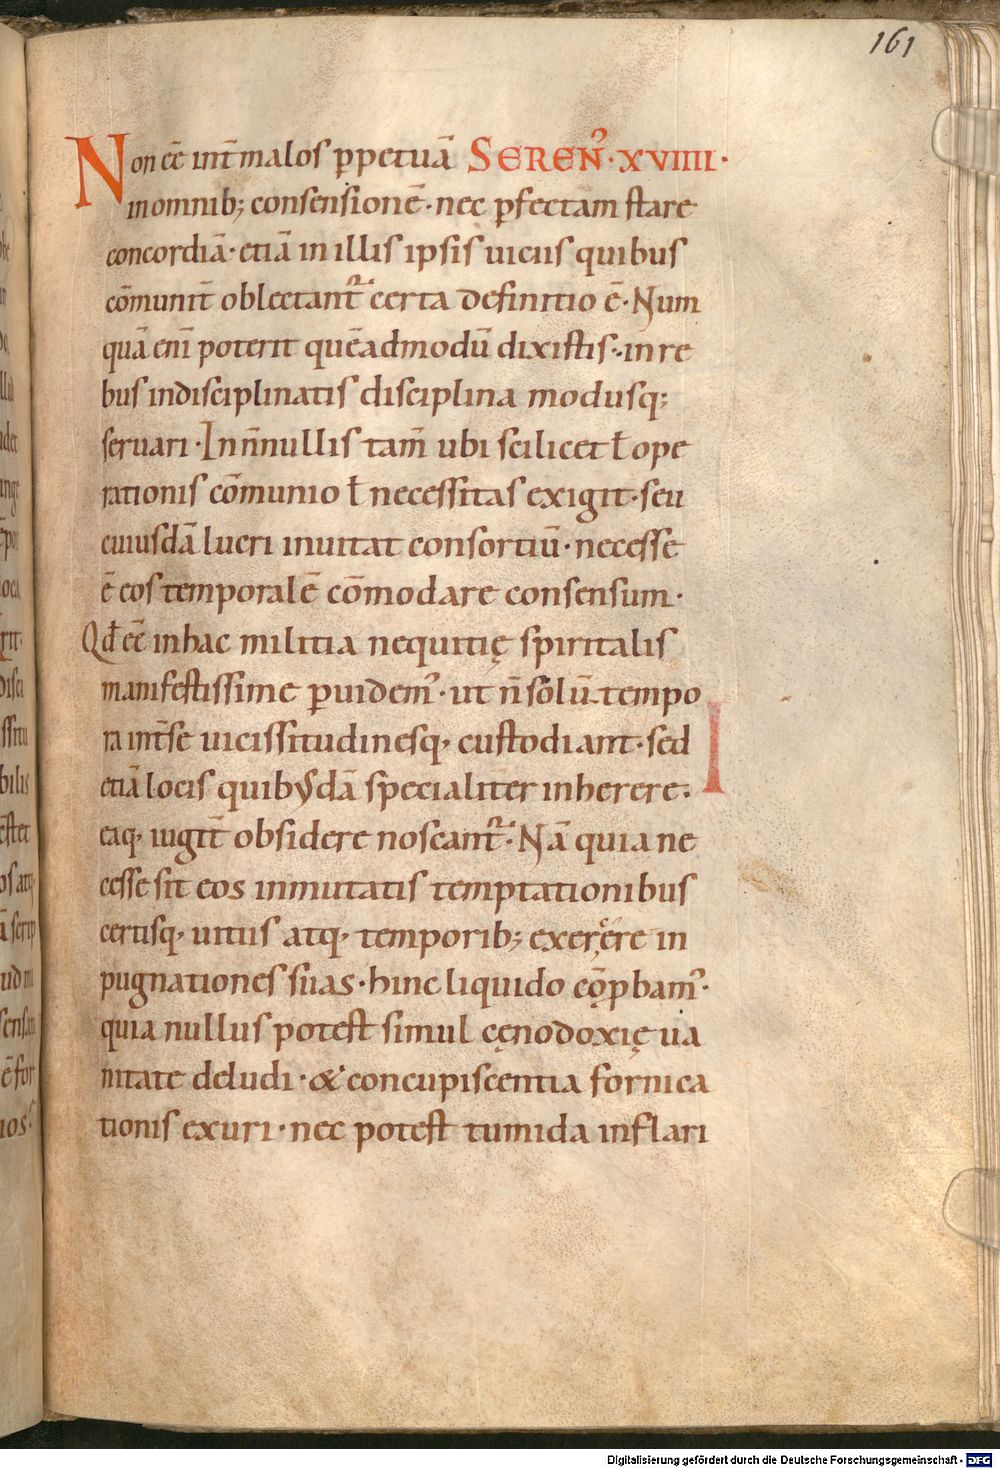 161
Non eē̄ int̄ malos p̱petuā SEREN᷒·XVIIII·
in omnib; consensionē·nec p̱fectam stare
concordiā·etiā in illis ipsis uiciis quibus
cōmunit̄ oblectant᷒ certa definitio ē·Num
quā eni̅ poterit quēadmodū dixistis·in re
bus indisciplinatis disciplina modusq;
seruari·In n̄nullis tam̄ ubi scilicet ł ope
rationis cōmunio ł necessitas exigit·seu
cuiusdā lucri inuitat consortiū·necesse
ē eos temporalē cōmodare consensum·
Qđ eē̄ in hac militia nequitię spiritalis
manifestissime p̱uidem᷒·ut n̄ solū tempo
ra int̄ se uicissitudinesq· custodiant·sed
etiā locis quibusdā specialiter inherere·
eaq· iugit̄ obsidere noscant᷒·Nā quia ne
cesse sit eos inmutatis temptationibus
certisq· uitiis atq· temporib; exercere in
pugnationes suas·hinc liquido cōp̱bam᷒·
quia nullus potest simul cęnodoxię ua
nitate deludi·& concupiscentia fornica
tionis exuri·nec potest tumida inflari
Digitalisierung gefördert durch die Deutsche Forschungsgemeinschaft - DFG